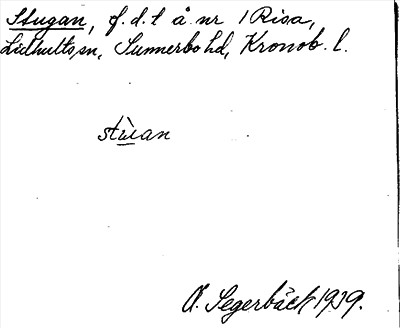 Stugan, f.d. t å nr 1 Risa,
Lidhults sn, Sunnerbo hd, Kronob. l.
stùan
A. Segerbäck 1939.